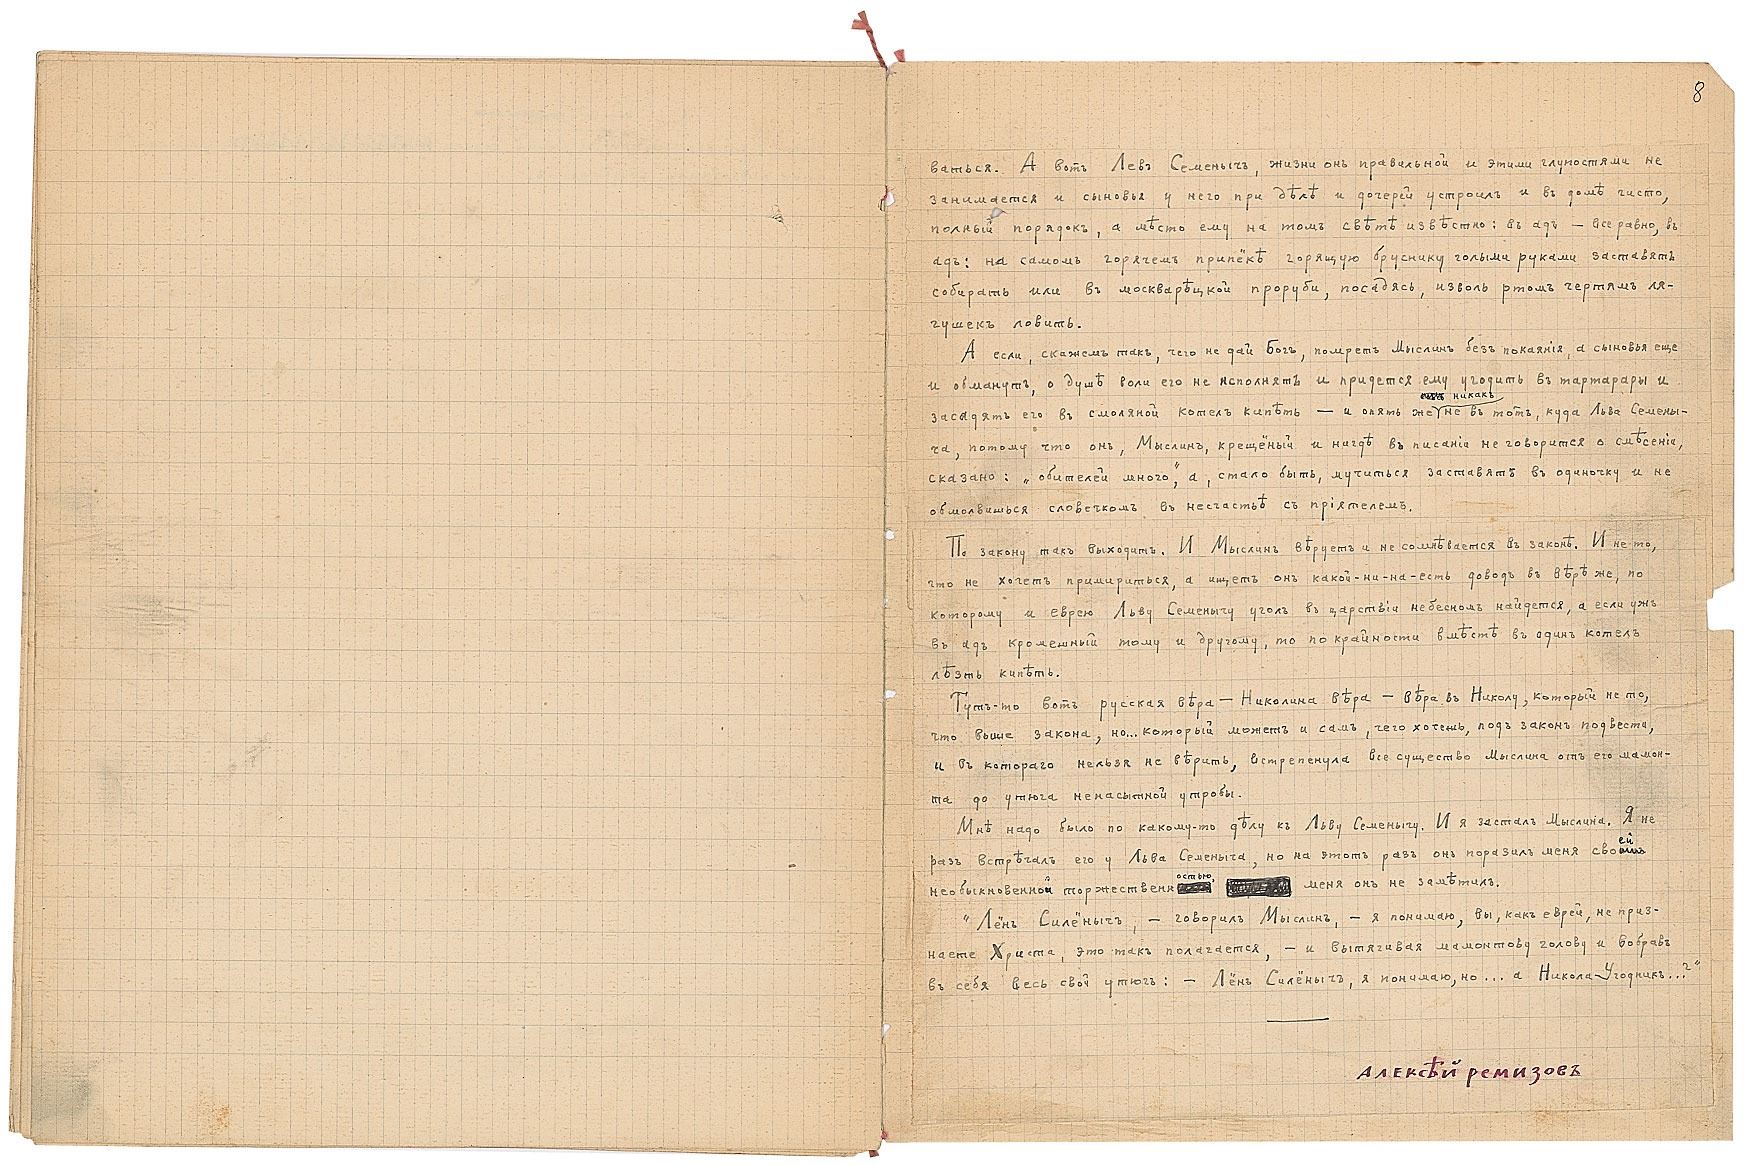 8
ваться. А вотъ Левъ Семенычъ, жизни онъ правильной и этими глупостями не
занимается и сыновья у него при дѣлѣ и дочерей устроилъ и въ домѣ чисто,
полный порядокъ, а мѣсто ему на томъ свѣтѣ извѣстно: въ адъ — все равно, въ
адъ: на самомъ горячемъ припёкѣ горящую бруснику голыми руками заставятъ
собирать или въ москварѣцкой проруби, посадясь, изволь ртомъ чертямъ ля-
гушекъ ловить.
А если, скажемъ такъ, чего не дай Богъ, помретъ Мыслинъ безъ покаянія, а сыновья еще
и обманутъ, о душѣ воли его не исполнятъ и придется ему угодить въ тартарары и
никакъ
засадятъ его въ смоляной котелъ кипѣть — и опять же не въ тотъ, куда Льва Семены-
ча, потому что онъ, Мыслинъ, крещёный и нигдѣ въ писаніи не говорится о смѣсеніи,
сказано: „обителей много", а, стало быть, мучиться заставятъ въ одиночку и не
обмолвишься словечкомъ въ несчастьѣ съ пріятелемъ.
По закону такъ выходитъ. И Мыслинъ вѣруетъ и не сомнѣвается въ законѣ. И не то,
что не хочетъ примириться, а ищетъ онъ какой-ни-на-есть доводъ въ вѣрѣ же, по
которому и еврею Льву Семенычу уголъ въ царствіи небесномъ найдется, а если ужъ
въ адъ кромешный тому и другому, то по крайности вмѣстѣ въ одинъ котелъ
лѣзть кипѣть.
Тутъ-то вотъ русская вѣра — Николина вѣра — вѣра въ Николу, который не то,
что выше закона, но... который можетъ и самъ, чего хотешь, подъ законъ подвести,
и въ котораго нельзя не вѣрить, встрепенула все существо Мыслина отъ его мамон-
та до утюга ненасытной утробы.
Мнѣ надо было по какому-то дѣлу къ Льву Семенычу. И я засталъ Мыслина. Я не
разъ встрѣчалъ его у Льва Семеныча, но на этотъ разъ онъ поразилъ меня своей
необыкновенной торжественностью, меня онъ не замѣтилъ.
"Лёнъ Силёнычъ, — говорилъ Мыслинъ, — я понимаю, вы, какъ еврей, не приз-
наете Христа, это такъ полагается, — и вытягивая мамонтову голову и вобравъ
въ себя весь свой утюгъ: — Лёнъ Силёнычъ, я понимаю, но... а Никола-Угодникъ...?"
Алексѣй Ремизовъ